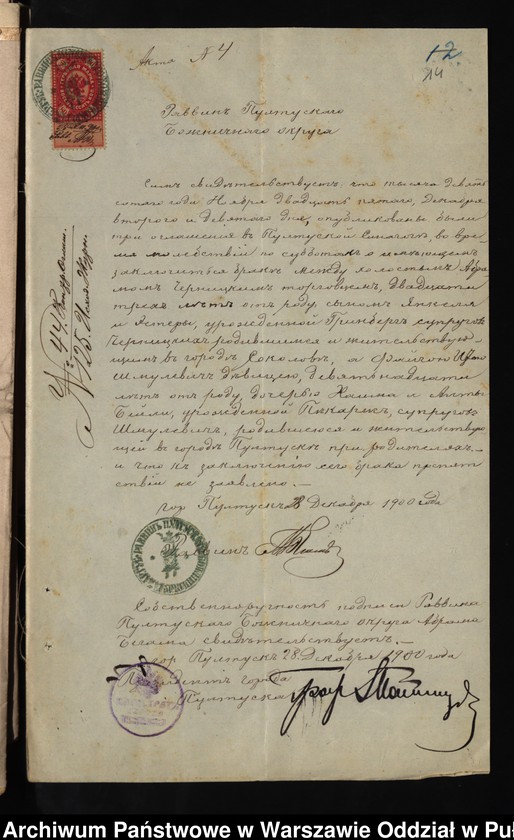 Актъ N 4
12
14
Раввинъ Пултускаго
Божничнаго округа
Симъ свидѣтельствуетъ, что тысяча девять
сотаго года Ноября двадцать пятаго, Декабря
второго и девятаго дня, опубликованы были
три оглашенія въ Пултуской Синагогѣ, во вре
мя молебствій по субботамъ о имѣющемъ
заключиться бракѣ между холостымъ Абра
момъ Черницкимъ торговцемъ, двадцати
трехъ лѣтъ отъ роду, сыномъ Янкеля
и Эстеры, урожденной Гринбергъ супруговъ
Черницкихъ родившимся и жительствую-
щимъ въ городѣ Соколовѣ, а
Шмулевичъ дѣвицею, девятнадцати
лѣтъ отъ роду, дочерью Хаима и
Бейли, урожденной супруговъ
Шмулевичъ, родившеюся и жительствую
щей въ городѣ Пултускѣ при родителяхъ,
и что къ заключенію сего брака препят
ствій не заявлено. —
гор Пултускъ 28 Декабря 1900 года
Раввинъ
Собственноручность подписи Раввина
Пултускаго Божничнаго округа Абрама
свидѣтельствуетъ. —
гор Пултускъ 28 Декабря 1900 года
Президентъ города
Пултуска
Archiwum Państwowe w Warszawie Oddział w Puł